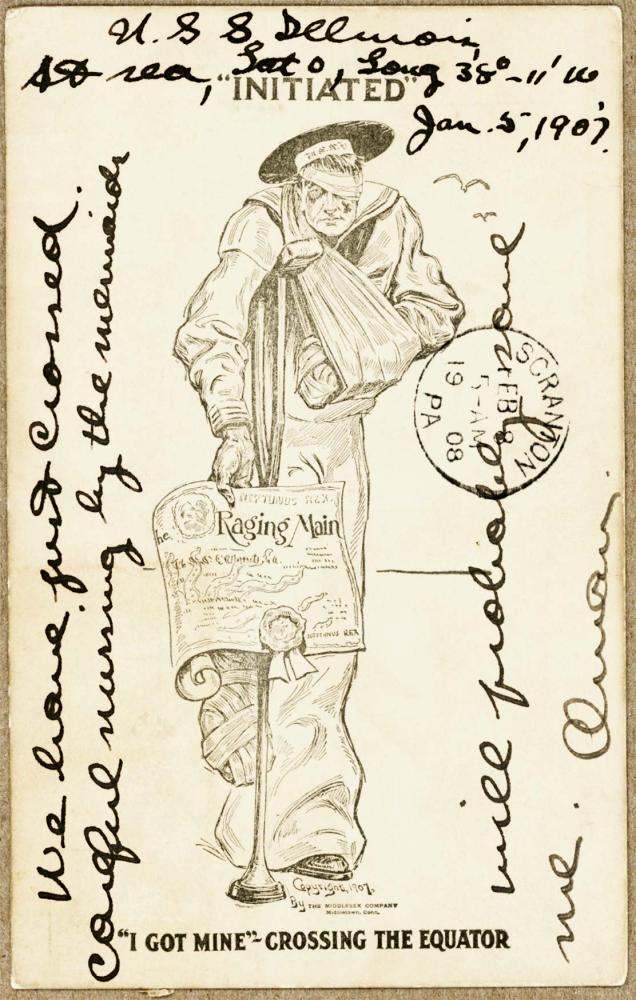 U.S.S. Illinois,
At sea, Lat 0, Long 38°-11' W
"INITIATED"
Jan. 5, 1907.
We have just crossed.
careful nursing by the mermaids
will probably save
me.
SCRANTON
FEB 8
5-AM
19 08
PA
NEPTUNUS REX.
Raging Main
NEPTUNUS REX
Copyright, 1907,
By THE MIDDLESEX COMPANY
Middletown, Conn.
"I GOT MINE"-CROSSING THE EQUATOR